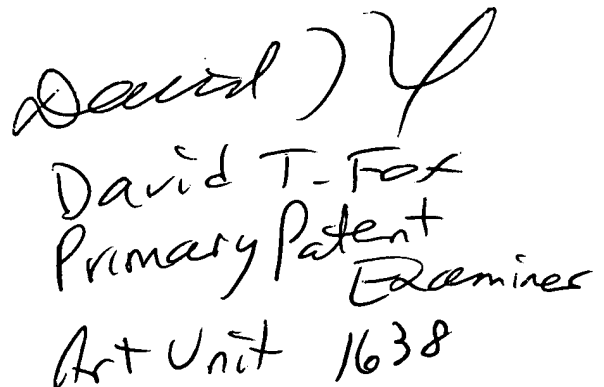 David T. Fox
Primary Patent
Examiner
Art Unit 1638